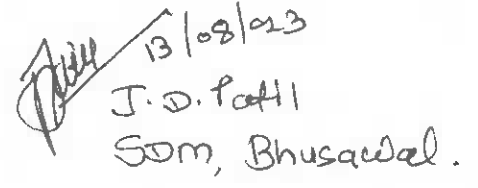 13/08/023
J.D. Patil
SDM, Bhusawal.